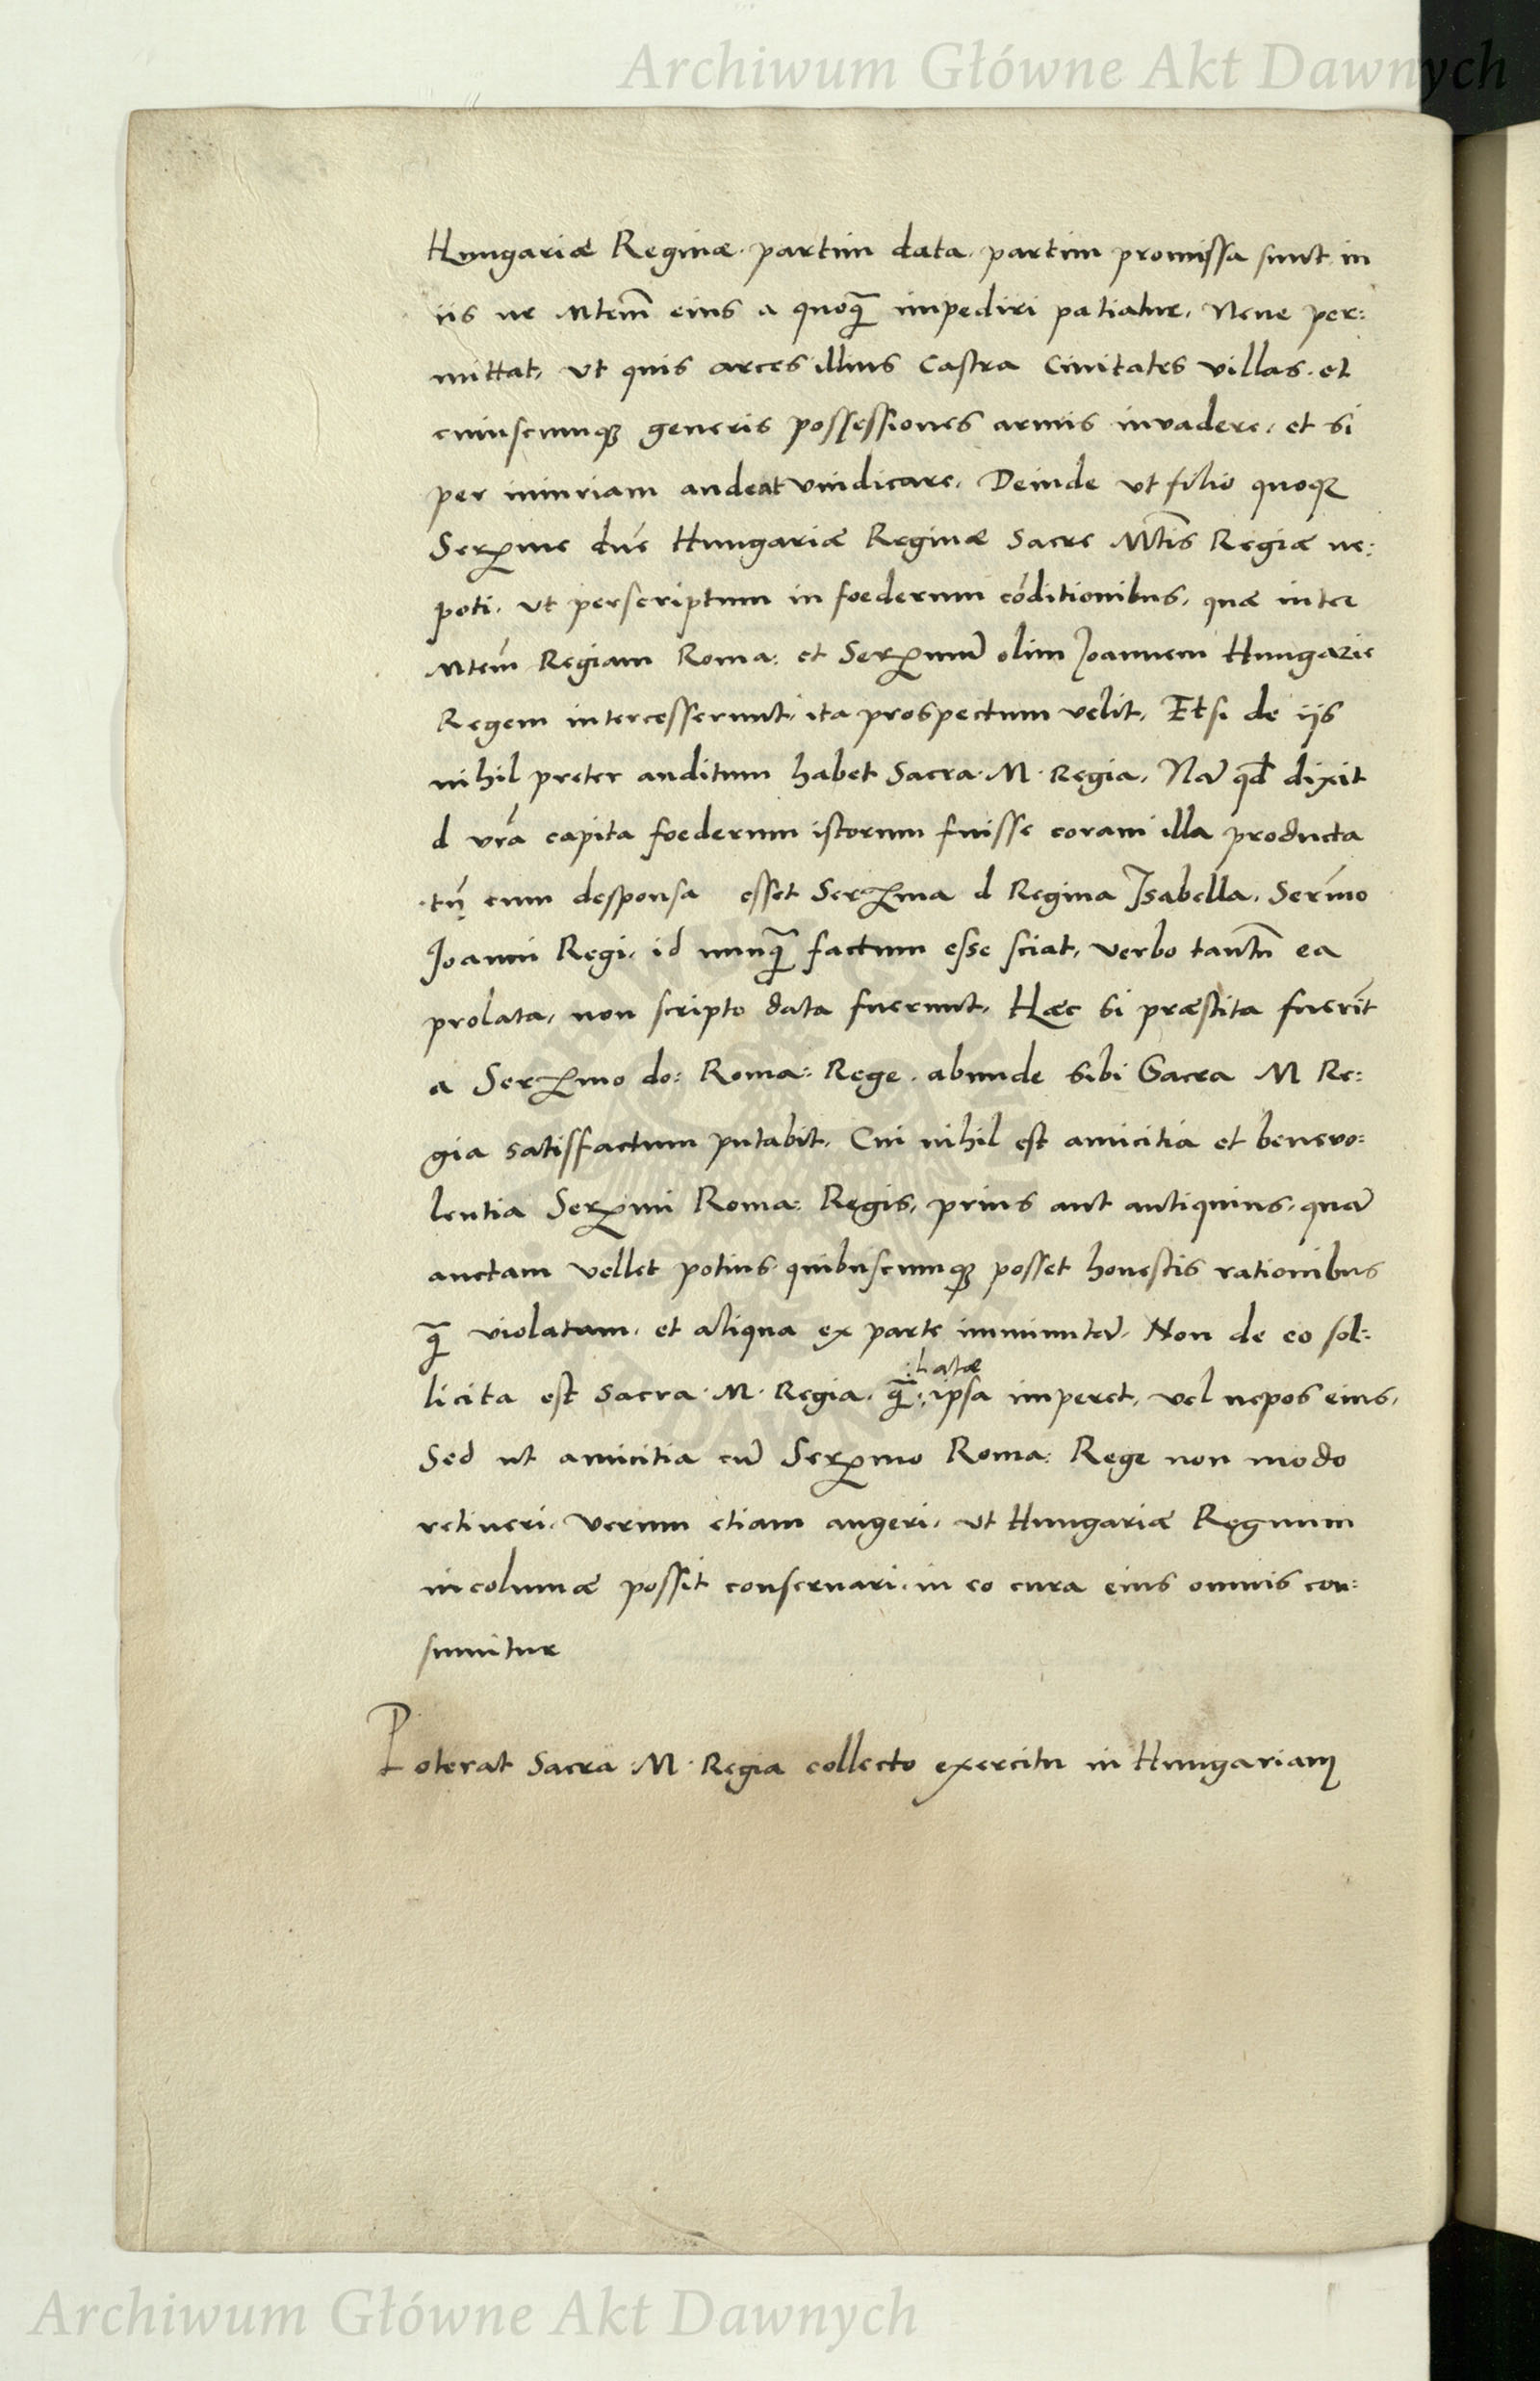 Archiwum Główne Akt Dawnych
Hungariæ Reginæ. partim data. partim promissa sunt. in
iis ne Mtem̃ eius a quoq̃ impediri patiatur. Neue per:
mittat, ut quis arces illius Castra Ciuitates villas. et
cuiuscumqꝫ generis possessiones armis invadere, et si
per iniuriam audeat vindicare. Deinde ut filio quoqꝫ
Serꝫme dn̄e Hungariæ Reginæ Sacre Mt̃is Regiæ ne:
poti. ut perscriptum in foederum cōditionibus, quæ inter
Mtem̄ Regiam Roma: et Serꝫmum̄ olim Joannem Hungarie
Regem intercesserunt, ita prospectum velit, Etsi de ijs
nihil preter auditum habet Sacra M. Regia, Nā qd̄ dixit
d vrā capita foederum istorum fuisse coram illa producta
tū cum desponsa esset Serꝫma d Regina Isabella, Serm̄o
Joanni Regi. id nunq̄ factum esse sciat, verbo tantū ea
prolata, non scripto data fuerunt, Hæc si præstita fuerīt
a Serꝫmo do: Roma: Rege. abunde sibi Sacra M Re:
gia satisfactum putabit. Cui nihil est amicitia et beneuo:
lentia Serꝫmi Roma: Regis, prius aut antiquius, quā
auctam vellet potius quibuscumqꝫ posset honestis rationibus
q̄ violatam, et aliqua ex parte imminutā. Non de eo sol:
licita est Sacra M. Regia. q̄ :latæ ipsa imperet, vel nepos eius,
Sed ut amicitia cū Serꝫmo Roma: Rege non modo
retineri, verum etiam augeri, ut Hungariæ Regnum
incolumæ possit conseruari, in eo cura eius omnis con:
sumitur
Poterat Sacra M. Regia collecto exercitu in Hungariam
Archiwum Główne Akt Dawnych